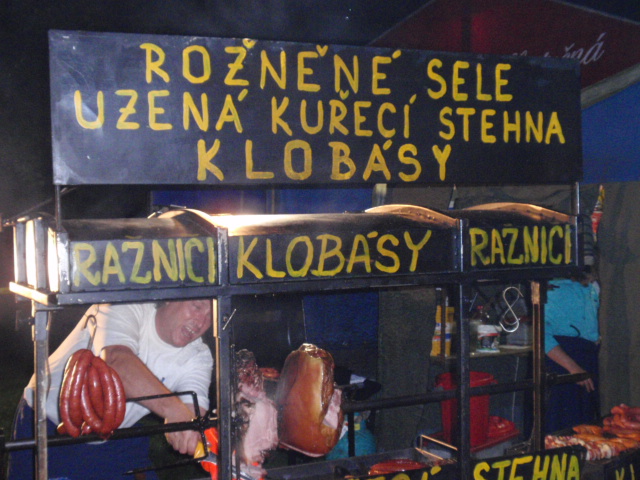 ROŽNĚNÉ SELE
UZENÁ KUŘECÍ STEHNA
KLOBÁSY
RAŽNICI KLOBÁSY RAŽNICI
STEHNA